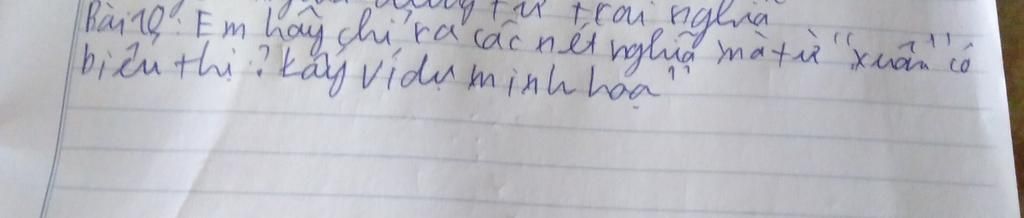 từ trái nghĩa
Bài 10: Em hãy chỉ ra các nét nghĩa mà từ "xuân" có
biểu thị? Lấy ví dụ minh hoạ"